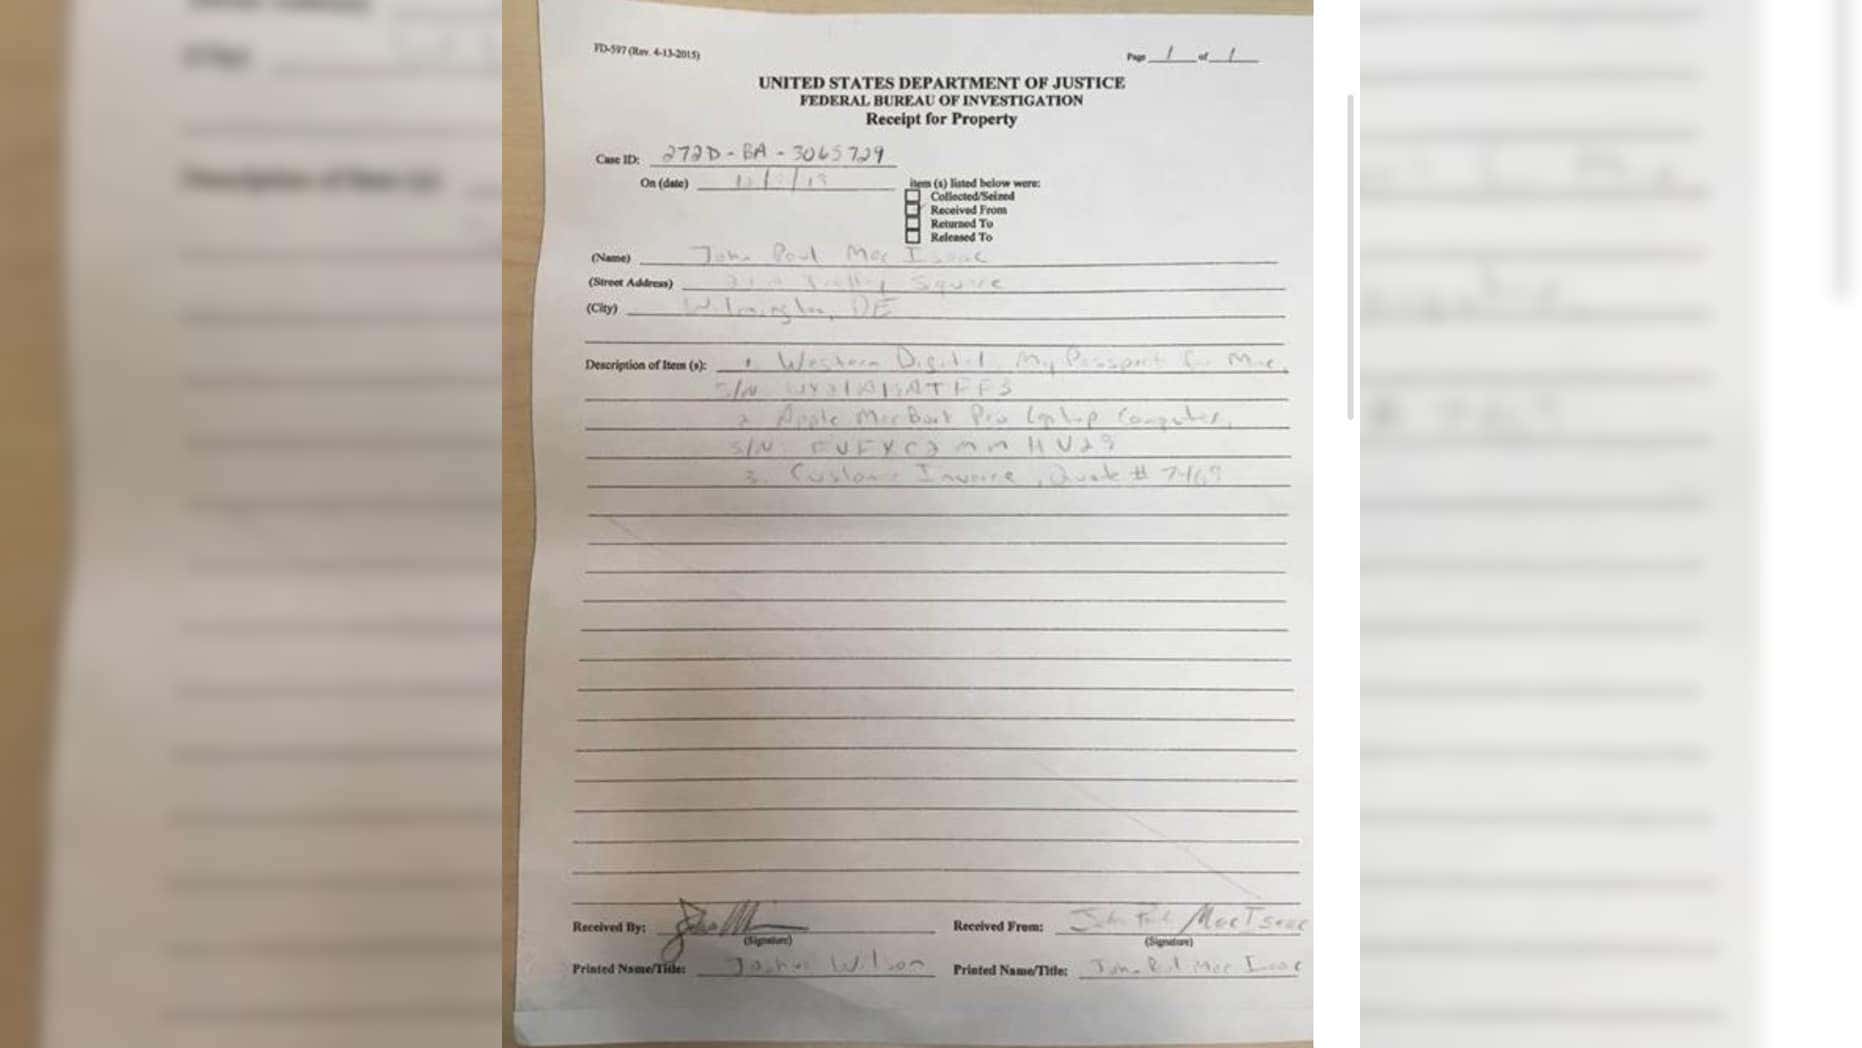 FD-597 (Rev. 4-13-2015)
Page 1 of 1
UNITED STATES DEPARTMENT OF JUSTICE
FEDERAL BUREAU OF INVESTIGATION
Receipt for Property
Case ID: 272D-BA-3065729
On (date)
item (s) listed below were:
Collected/Seized
Received From
Returned To
Released To
(Name) John Paul Mac Isaac
(Street Address) Square
(City) Wilmington, DE
Description of Item (s): 1. Western Digital My Passport for Mac,
S/N
2. Apple MacBook Pro Laptop Computer,
S/N
3. Customer Invoice, Quote # 7469
Received By:
(Signature)
Received From: John Paul MacIsaac
(Signature)
Printed Name/Title: Joshua Wilson
Printed Name/Title: John Paul Mac Isaac